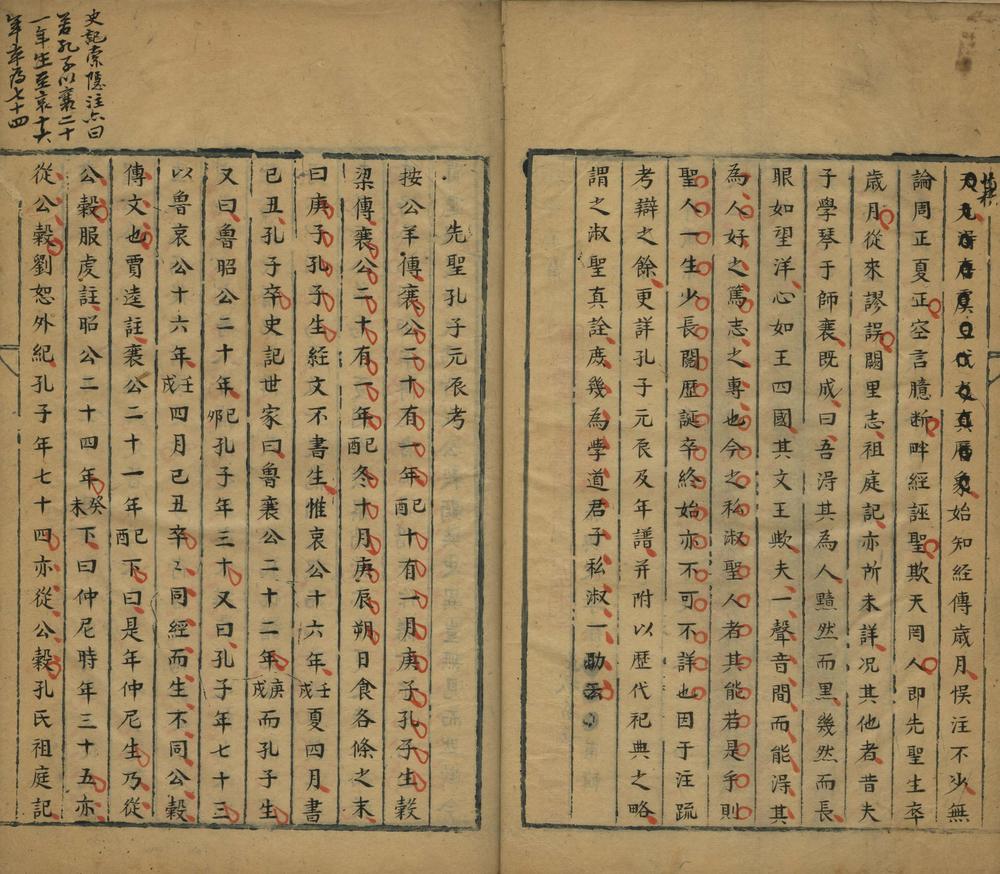 論周正夏正空言臆断畔經誣聖欺天罔人即先聖生卒
歳月從來謬誤闕里志祖庭記亦所未詳况其他者昔夫
子學琴于師襄既成曰吾淂其為人黯然而黒幾然而長
眼如望洋心如王四國其文王歟夫一聲音間而能淂其
為人好之篤志之專也今之私淑聖人者其能若是乎則
聖人一生少長閱歷誕辛終始亦不可不詳也因于注疏
考辯之餘更詳孔子元辰及年譜并附以歷代祀典之略
謂之淑聖真詮庻幾為學道君子私淑一助云
先聖孔子元辰考
按公羊傳襄公二十有一年己酉十有一月庚子孔子生榖
梁傳襄公二十有一年己酉冬十月庚辰朔日食各條之末
曰庚子孔子生經文不書生惟哀公十六年壬戌夏四月書
已丑孔子卒史記世家曰魯襄公二十二年庚戌而孔子生
又曰魯昭公二十年己卯孔子年三十又曰孔子年七十三
以魯哀公十六年壬戌四月己丑卒卒同經而生不同公榖
傳文也賈逵註襄公二十一年己酉下曰是年仲尼生乃從
公榖服虔註昭公二十四年癸未下曰仲尼時年三十五亦
從公榖劉恕外紀孔子年七十四亦從公榖孔氏祖庭記
史記索隱注亦曰
若孔子以襄二十
一年生至哀十六
年卒為七十四